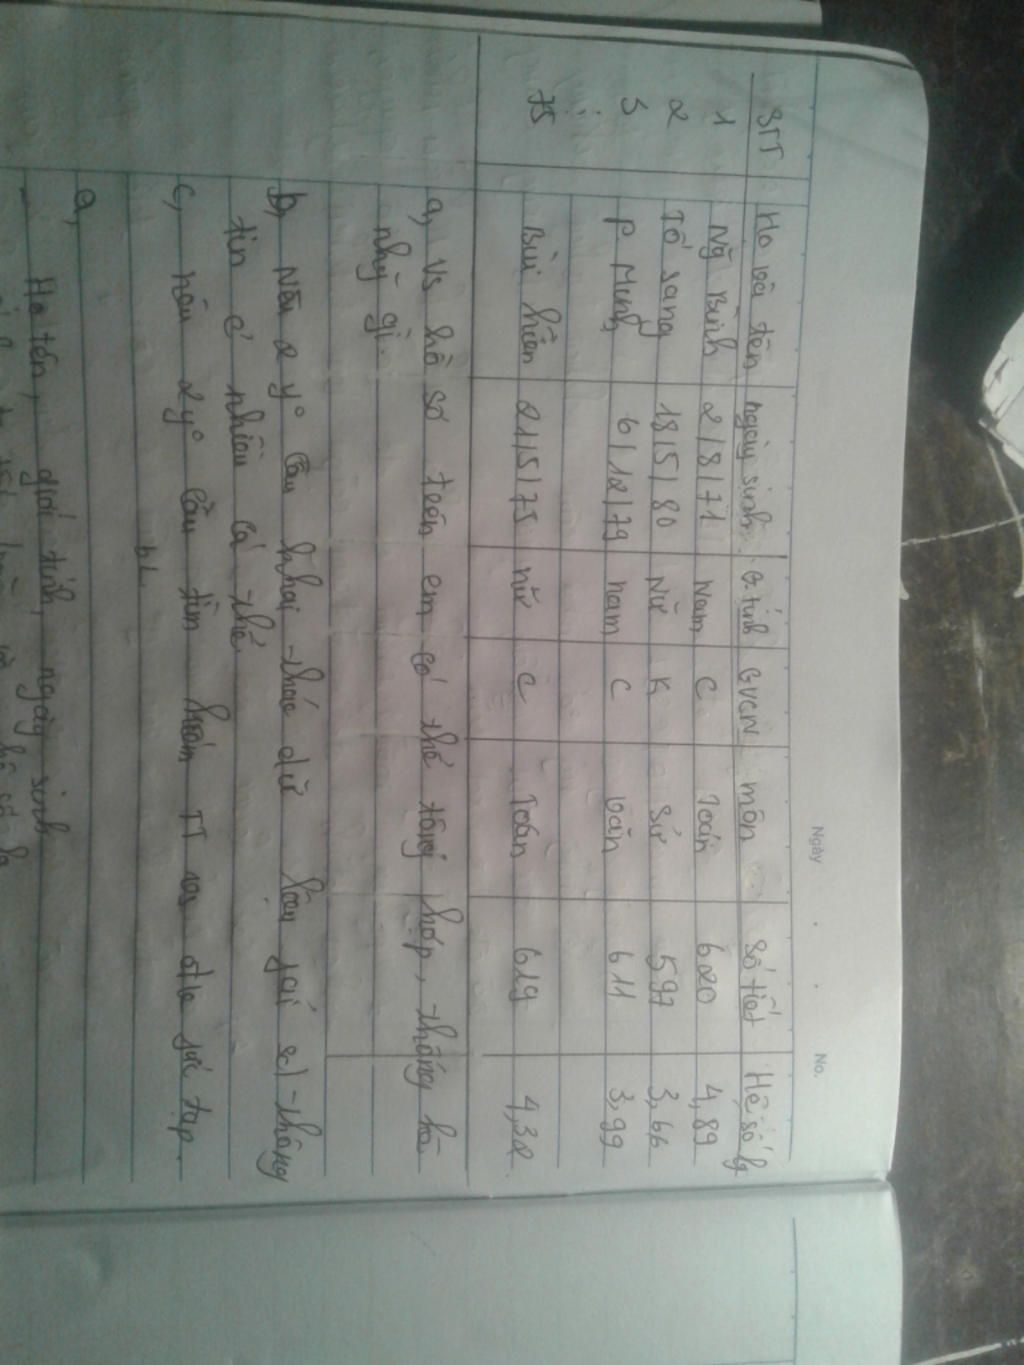 Ngày . . No.
STT Họ và tên ngày sinh G. tính GVCN môn số tiết Hệ số lg
1 Ng Bình 2/8/71 Nam C Toán 620 4,89
2 Tố sang 18/5/80 Nữ K Sử 597 3,66
3 P Minh 6/12/79 nam C Văn 611 3,99
75 Bùi hiền 21/5/75 nữ C Toán 619 4,32
a, Vs hồ sơ trên em có thể tổng hợp, thống kê
nhg gì.
b, Nêu 2 y° cần khai thác dữ
tin ở nhiều cá thể
c, nêu 2 y° cần tìm kiếm TT
bL
a,
Họ tên, giới tính, ngày sinh